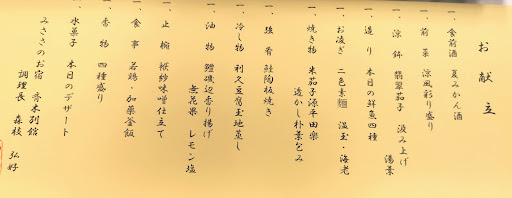 お献立
一、食前酒 夏みかん酒
一、前菜 涼風彩り盛り
一、涼鉢 翡翠茄子 汲み上げ
湯葉
一、造り 本日の鮮魚四種
一、お凌ぎ 二色素麺 温玉・海老
一、焼き物 米茄子源平田楽
透かし朴葉包み
一、強肴 鮭陶板焼き
一、冷し物 利久豆腐玉地蒸し
一、油物 鱧磯辺香り揚げ
無花果 レモン塩
一、止椀 袱紗味噌仕立て
一、食事 若鶏・加薬釜飯
一、香物 四種盛り
一、水菓子 本日のデザート
みささのお宿 斉木別館
調理長 森枝 弘好